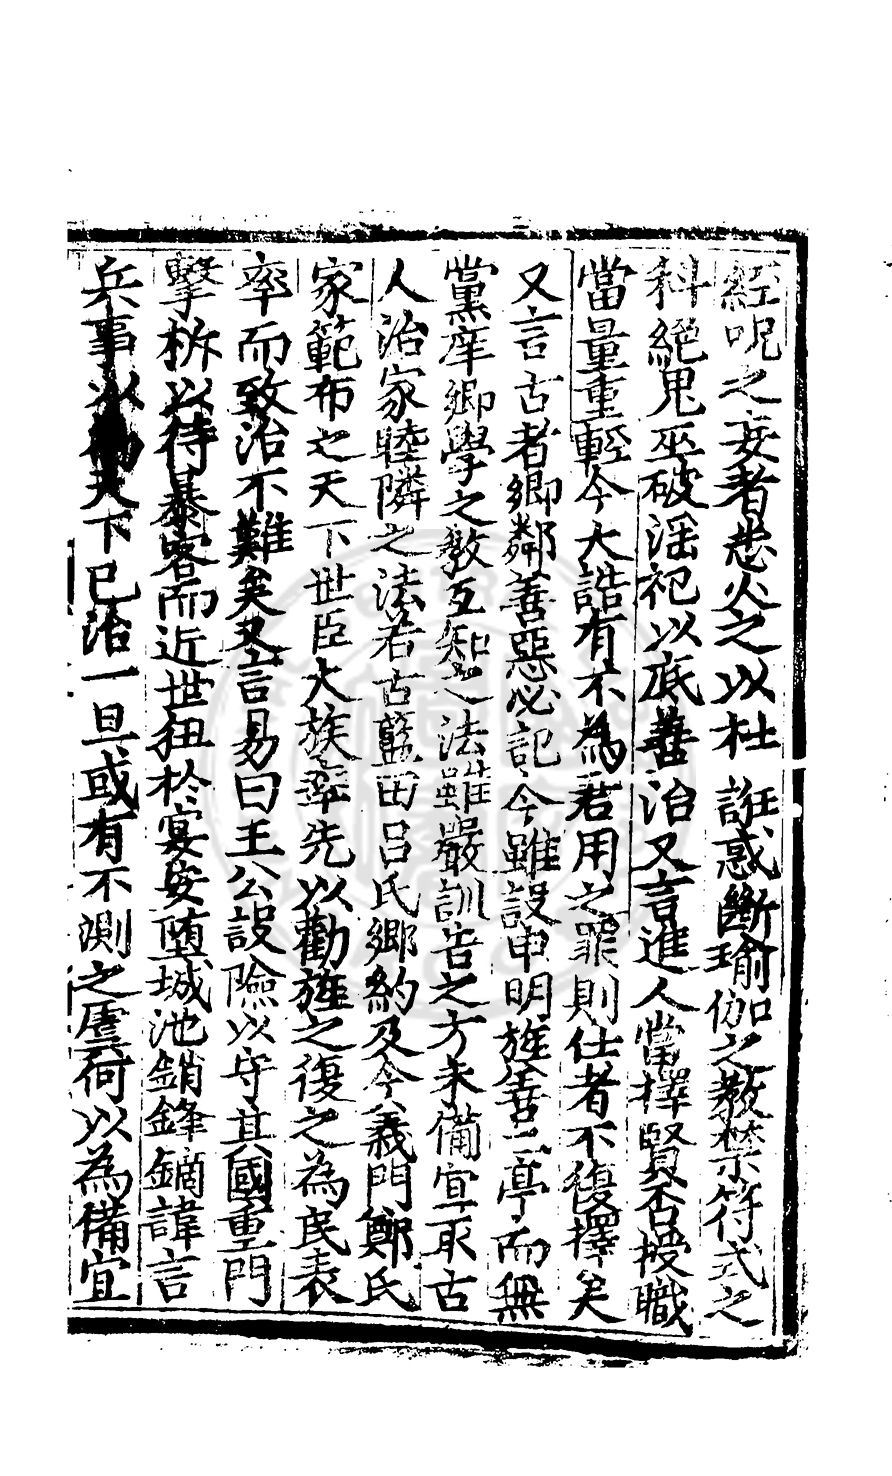 經呪之妄者悉火之以杜誑惑斷瑜伽之教禁符式之
科絕鬼巫破淫祀以底善治又言進人當擇賢否授職
當量重輕今大誥有不為君用之罪則仕者不復擇矣
又言古者鄉鄰善惡必記今雖設申明旌善二亭而無
黨庠鄉學之教互知之法雖嚴訓告之方未備宜取古
人治家睦隣之法若古藍田呂氏鄉約及今義門鄭氏
家範布之天下世臣大族率先以勸旌之復之為民表
率而致治不難矣又言易曰王公設險以守其國重門
擊柝以待暴客而近世狃於宴安堕城池銷鋒鏑諱言
兵事以為天下已治一旦或有不測之虞何以為備宜